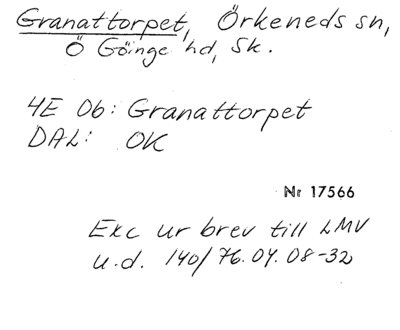 Granattorpet, Örkeneds sn,
Ö Göinge hd, Sk.
4E 0b: Granattorpet
DAL: OK
Nr 17566
Exc ur brev till LMV
u.d. 140/76.04.08-32